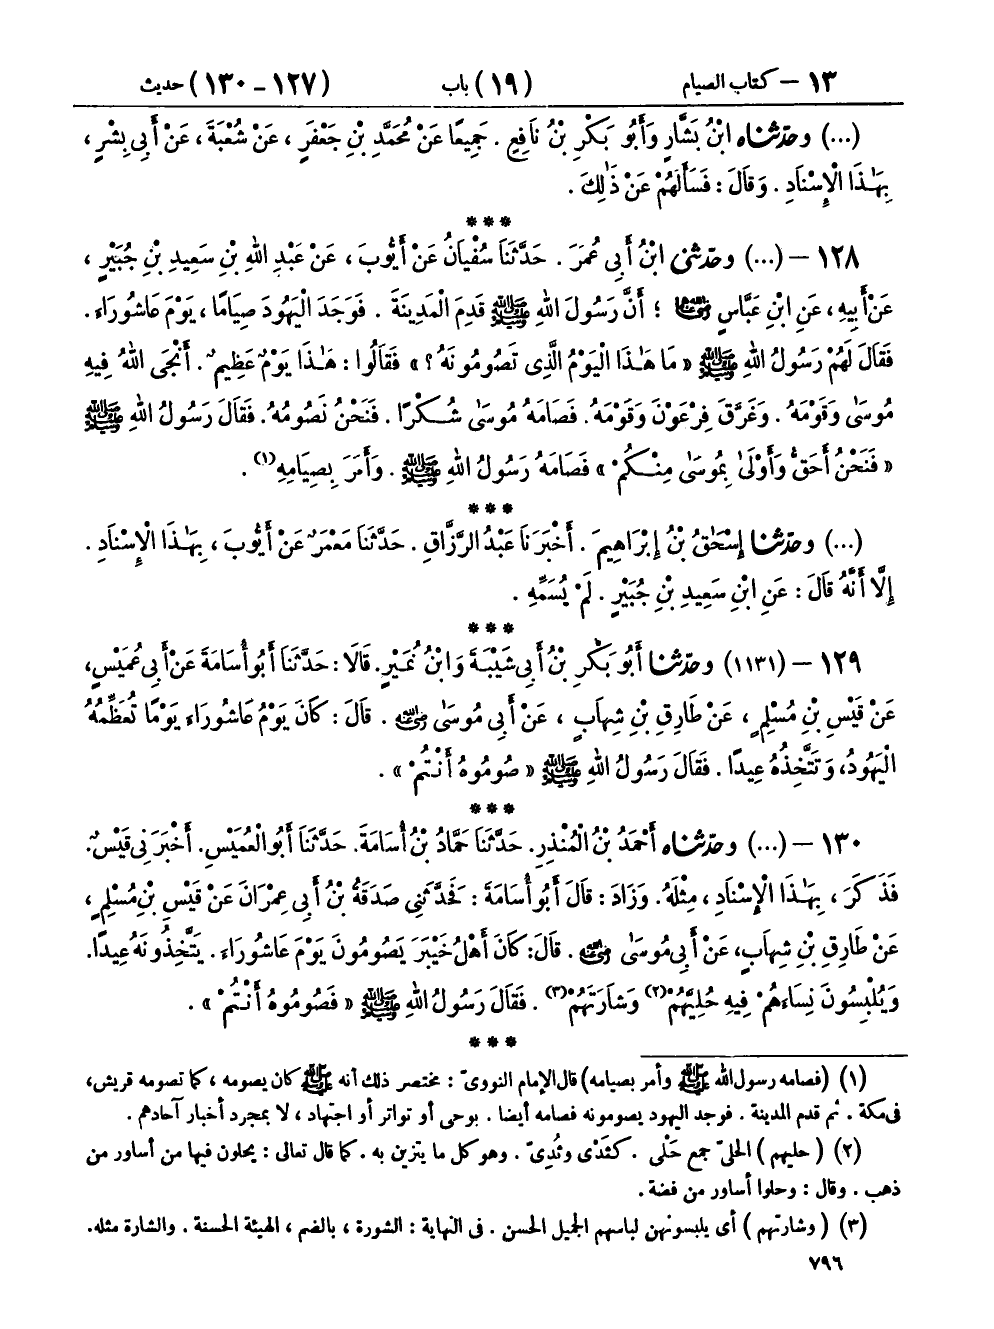 ١٣ – كتاب الصيام (١٩) باب (١٢٧ - ١٣٠) حديث
(...) وحدّثناه ابْنُ بَشَّارٍ وَأَبُو بَكْرِ بْنُ نَافِعٍ . جَمِيعًا عَنْ مُحَمَّدِ بْنِ جَعْفَرٍ ، عَنْ شُعْبَةَ ، عَنْ أَبِى بِشْرٍ ،
بِهَـٰذَا الْإِسْنَادِ . وَقَالَ : فَسَأَلَهُمْ عَنْ ذَٰلِكَ .
***
١٢٨ – (...) وحدّثنى ابْنُ أَبِى عُمَرَ . حَدَّثَنَا سُفْيَانُ عَنْ أَيُّوبَ ، عَنْ عَبْدِ اللهِ بْنِ سَعِيدِ بْنِ جُبَيْرٍ ،
عَنْ أَبِيهِ ، عَنِ ابْنِ عَبَّاسٍ رضي الله عنهما ؛ أَنَّ رَسُولَ اللهِ ﷺ قَدِمَ الْمَدِينَةَ . فَوَجَدَ الْيَهُودَ صِيَامًا ، يَوْمَ عَاشُورَاءَ .
فَقَالَ لَهُمْ رَسُولُ اللهِ ﷺ « مَا هَـٰذَا الْيَوْمُ الَّذِى تَصُومُونَهُ ؟ » فَقَالُوا : هَـٰذَا يَوْمٌ عَظِيمٌ . أَنْجَى اللهُ فِيهِ
مُوسَىٰ وَقَوْمَهُ . وَغَرَّقَ فِرْعَوْنَ وَقَوْمَهُ . فَصَامَهُ مُوسَىٰ شُكْرًا . فَنَحْنُ نَصُومُهُ . فَقَالَ رَسُولُ اللهِ ﷺ
« فَنَحْنُ أَحَقُّ وَأَوْلَىٰ بِمُوسَىٰ مِنْكُمْ » فَصَامَهُ رَسُولُ اللهِ ﷺ . وَأَمَرَ بِصِيَامِهِ (١) .
***
(...) وحدّثنا إِسْحَٰقُ بْنُ إِبْرَاهِيمَ . أَخْبَرَنَا عَبْدُ الرَّزَّاقِ . حَدَّثَنَا مَعْمَرٌ عَنْ أَيُّوبَ ، بِهَـٰذَا الْإِسْنَادِ .
إِلَّا أَنَّهُ قَالَ : عَنِ ابْنِ سَعِيدِ بْنِ جُبَيْرٍ . لَمْ يُسَمِّهِ .
***
١٢٩ – (١١٣١) وحدّثنا أَبُو بَكْرِ بْنُ أَبِى شَيْبَةَ وَابْنُ نُمَيْرٍ. قَالَا : حَدَّثَنَا أَبُو أُسَامَةَ عَنْ أَبِى عُمَيْسٍ،
عَنْ قَيْسِ بْنِ مُسْلِمٍ ، عَنْ طَارِقِ بْنِ شِهَابٍ ، عَنْ أَبِى مُوسَىٰ رضي الله عنه . قَالَ : كَانَ يَوْمُ عَاشُورَاءَ يَوْمًا تُعَظِّمُهُ
الْيَهُودُ، وَتَتَّخِذُهُ عِيدًا . فَقَالَ رَسُولُ اللهِ ﷺ « صُومُوهُ أَنْتُمْ » .
***
١٣٠ – (...) وحدّثناه أَحْمَدُ بْنُ الْمُنْذِرِ. حَدَّثَنَا حَمَّادُ بْنُ أُسَامَةَ. حَدَّثَنَا أَبُو الْعُمَيْسِ. أَخْبَرَنِى قَيْسٌ.
فَذَكَرَ ، بِهَـٰذَا الْإِسْنَادِ ، مِثْلَهُ. وَزَادَ : قَالَ أَبُو أُسَامَةَ : فَحَدَّثَنِى صَدَقَةُ بْنُ أَبِى عِمْرَانَ عَنْ قَيْسِ بْنِ مُسْلِمٍ ،
عَنْ طَارِقِ بْنِ شِهَابٍ، عَنْ أَبِى مُوسَىٰ رضي الله عنه . قَالَ: كَانَ أَهْلُ خَيْبَرَ يَصُومُونَ يَوْمَ عَاشُورَاءَ . يَتَّخِذُونَهُ عِيدًا.
وَيُلْبِسُونَ نِسَاءَهُمْ فِيهِ حُلِيَّهُمْ (٢) وَشَارَتَهُمْ (٣) . فَقَالَ رَسُولُ اللهِ ﷺ « فَصُومُوهُ أَنْتُمْ » .
***
(١) (فصامه رسول الله ﷺ وأمر بصيامه) قال الإمام النووىّ : مختصر ذلك أنه ﷺ كان يصومه ، كما تصومه قريش،
فى مكة . ثم قدم المدينة . فوجد اليهود يصومونه فصامه أيضا . بوحى أو تواتر أو اجتهاد ، لا بمجرد أخبار آحادهم .
(٢) ( حليهم ) الحلىّ جمع حَلْى . كثَدْى وثُدِىّ . وهو كل ما يتزين به . كما قال تعالى : يحلون فيها من أساور من
ذهب . وقال : وحلوا أساور من فضة .
(٣) ( وشارتهم ) أى يلبسونهن لباسهم الجميل الحسن . فى النهاية : الشورة ، بالضم ، الهيئة الحسنة . والشارة مثله.
٧٩٦